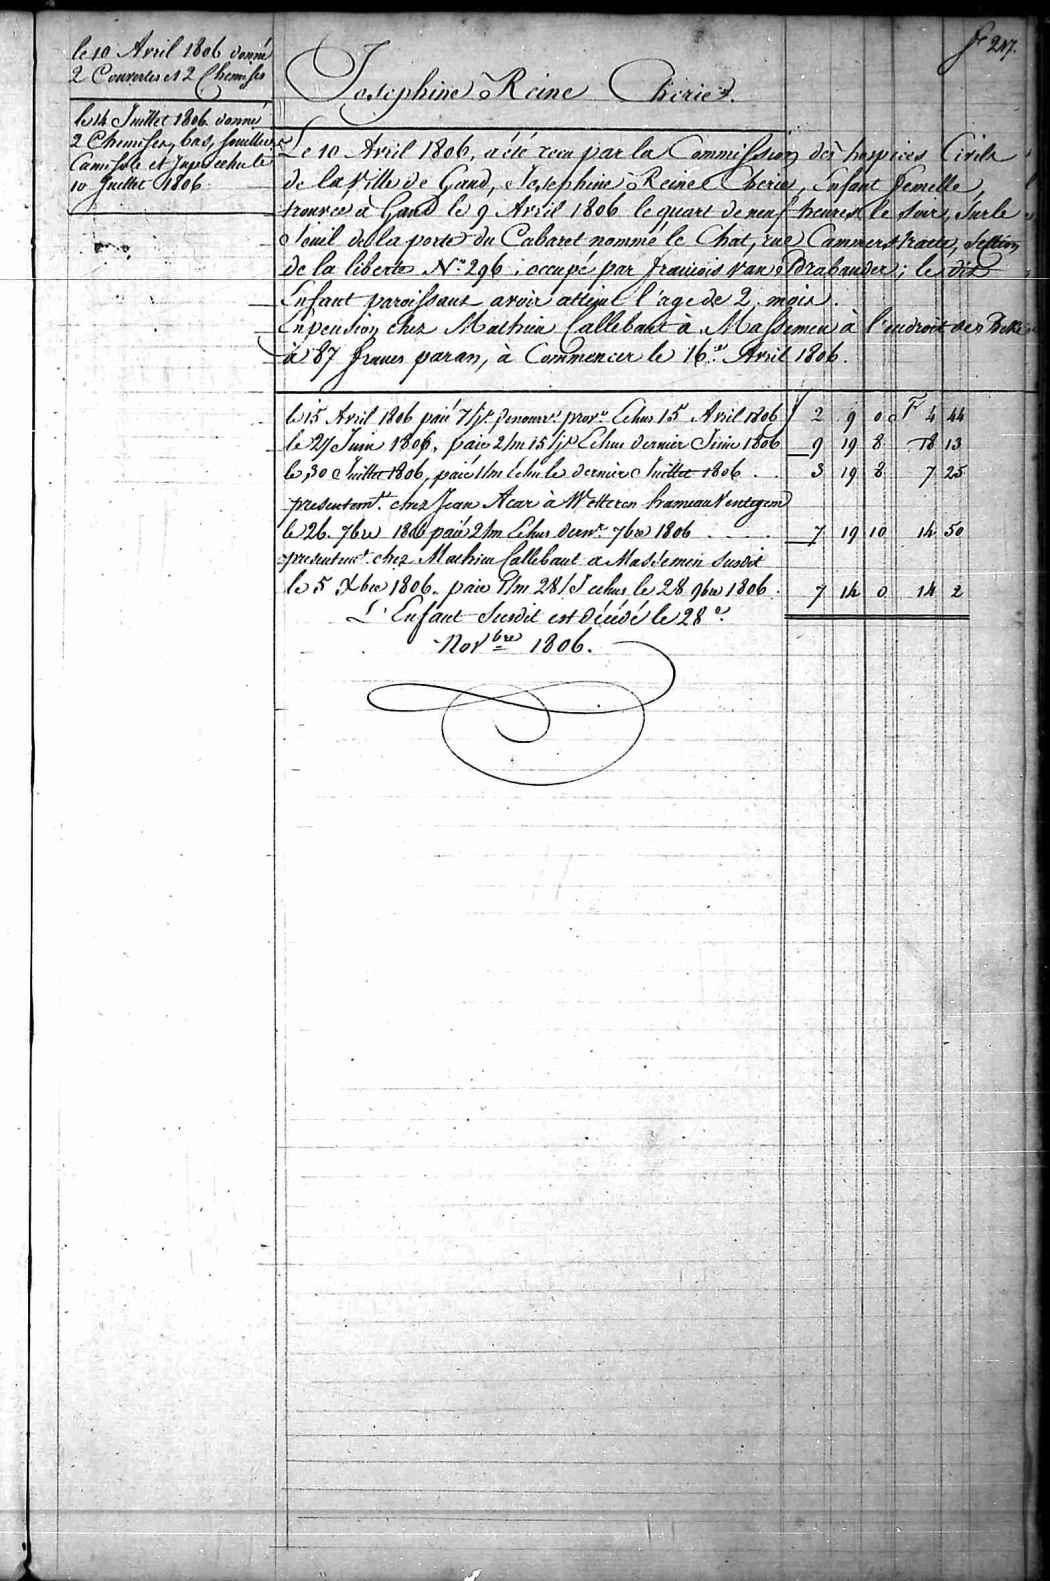 fo 247.
le 10 Avril 1806 donné
2 Couvertes et 2 Chemises
le 14 Juillet 1806 donné
2 Chemises, bas, souillers
Camisole et Jupe echu le
10 Juillet 1806.
Josephine Reine Cherie.
Le 10 Avril 1806, a été recu par la Commission des hospices Civils
de la Ville de Gand, Josephine Reine Cherie, Enfant femelle,
trouvée à Gand le 9 Avril 1806 le quart de neuf heures le soir, sur le
Seuil de la porte du Cabaret nommé le Chat, rue Cammerstraete, Section
de la liberté No 296 ; occupé par francois van Drabander ; le dit
Enfant paroissant avoir atteint l'age de 2. mois.
En pension chez Mathieu Callebaut à Massemen à l'endroit
à 87 francs par an, à Commencer le 16.e Avril 1806.
le 15 Avril 1806 paié 7/js Echus 15 Avril 1806 f 2 9 0 F 4 44
le 27 Juin 1806, paié 2/m 15/js Echus dernier Juin 1806 9 19 8 18 13
le 30 Juillet 1806, paié 1/m Echu le dernier Juillet 1806 . . 3 19 8 7 25
presentemt. chez Jean Acar à Wetteren hameau Ventegem
le 26. 7bre 1806 paié 2/m Echus dernr. 7bre 1806 . . . . 7 19 10 14 50
presentemt. chez Mathieu Callebaut a Massemen susdit
le 5 Xbre 1806. paié 1/m 28/J echus le 28 9bre 1806 . 7 14 0 14 2
L'Enfant Susdit est décédé le 28e.
Novbre 1806.